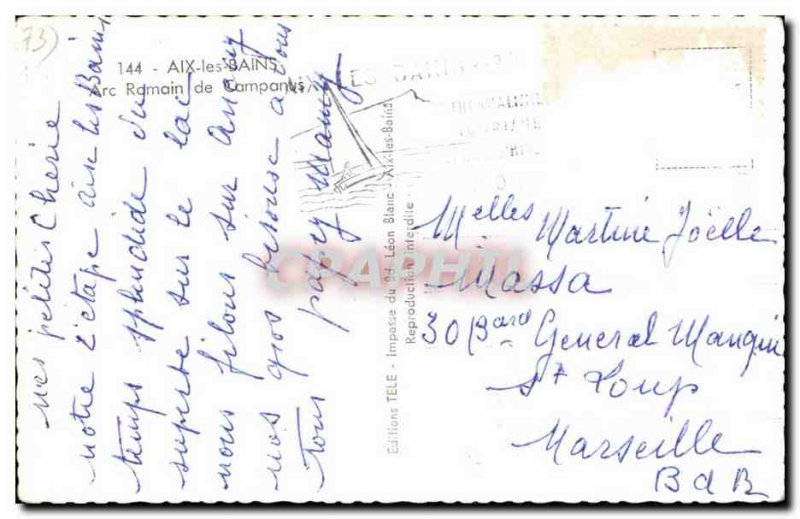 73)
144 - AIX-les-BAINS
Arc Romain de Campanus
mes petites Cherie
notre 2 etape aix les Bains
temps splendide vue
superbe sur le lac
nous filons sur Anecy
nos gros bisous a vous
Tous papy mamy
AIX LES BAINS
Editions TELE - Impasse du Bd. Léon Blanc - Aix-les-Bains
Reproduction Interdite
CPAPHIL
Melles Martine Joëlle
Massa
30 Bard General Mangin
St Loup
Marseille
B d R